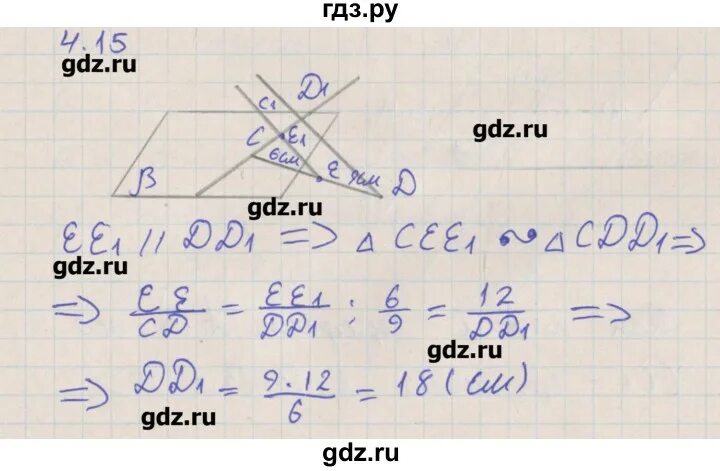 гдз.ру
4.15
gdz.ru
D1
C1
gdz.ru
C E1
6см E 9см
β D
gdz.ru
EE1 // DD1 => △ CEE1 ∾ △ CDD1 =>
gdz.ru
=> EE/CD = EE1/DD1 : 6/9 = 12/DD1 =>
gdz.ru
=> DD1 = 9·12/6 = 18 (см)
gdz.ru
gdz.ru